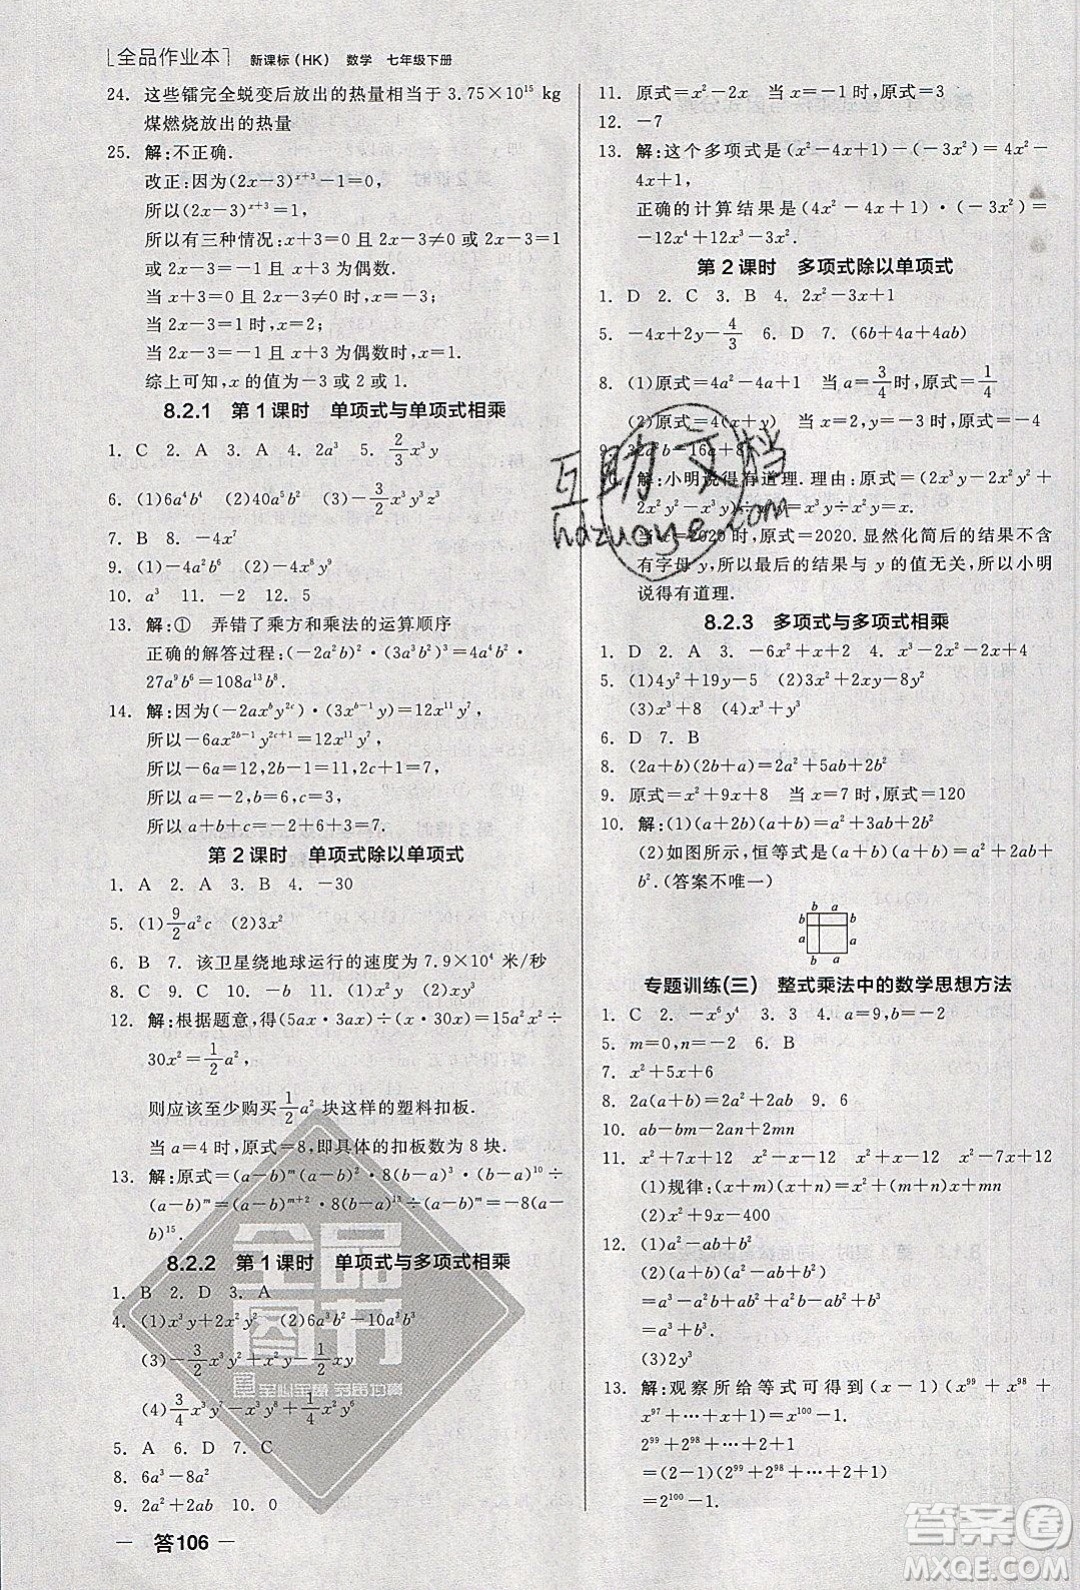 全品作业本 新课标(HK) 数学 七年级下册
24. 这些镭完全蜕变后放出的热量相当于 3.75×10¹⁵ kg
煤燃烧放出的热量
25. 解:不正确.
改正:因为(2x−3)ˣ⁺³−1=0,
所以(2x−3)ˣ⁺³=1,
所以有三种情况:x+3=0 且 2x−3≠0,
或 2x−3=1,或 2x−3=−1 且 x+3 为偶数.
当 x+3=0 且 2x−3≠0 时,解得 x=−3;
当 2x−3=1 时,解得 x=2;
当 2x−3=−1 且 x+3 为偶数时,解得 x=1.
综上可知,x 的值为−3 或 2 或 1.
8.2.1 第 1 课时 单项式与单项式相乘
1. C 2. A 3. A 4. 2a² 5. 2/3x³y
6. (1)6a⁴b⁴ (2)40a⁵b² (3)−3/2x³y³z³
7. B 8. −4x⁷
9. (1)−4a²b⁶ (2)−34x⁶y⁹
10. a³ 11. −2 12. 5
13. 解:① 弄错了乘方和乘法的运算顺序
正确的解答过程:(−2a²b)²·(3a³b²)³=4a⁴b²·
27a⁹b⁶=108a¹³b⁸.
14. 解:因为(−2axᵇy²ᶜ)·(3xᵇ⁻¹y)=12x¹¹y⁷,
所以−6ax²ᵇ⁻¹y²ᶜ⁺¹=12x¹¹y⁷,
所以−6a=12,2b−1=11,2c+1=7,
所以 a=−2,b=6,c=3,
所以 a+b+c=−2+6+3=7.
第 2 课时 单项式除以单项式
1. A 2. A 3. B 4. −30
5. (1)9/2a²c (2)3x²
6. B 7. 该卫星绕地球运行的速度为 7.9×10⁴ 米/秒
8. C 9. C 10. 4 11. 9
12. 解:根据题意,得(5ax·3ax)÷(x·30x)=15a²x²÷
30x²=1/2a²,
则应该至少购买1/2a²块这样的塑料扣板.
当 a=4 时,原式=8,即具体的扣板数为 8 块.
13. 解:原式=(a−b)ᵐ(a−b)²·8(a−b)³·(a−b)¹⁰÷
(a−b)ᵐ=(a−b)²·8(b−a)¹³÷(b−a)ᵐ=−8(a−
b)¹⁵.
8.2.2 第 1 课时 单项式与多项式相乘
1. B 2. D 3. A
4. (1)x³y+2x²y (2)6a³b²−10a²b³
5. A 6. D 7. C
8. 6a³−8a²
9. 2a²+2ab 10. 0
答106
11. 原式=x²−2x 当 x=−1 时,原式=3
12. −7
13. 解:这个多项式是(x²−4x+1)−(−3x²)=4x²−
4x+1;
正确的计算结果是(4x²−4x+1)·(−3x²)=
−12x⁴+12x³−3x².
第 2 课时 多项式除以单项式
1. D 2. C 3. B 4. 2x²−3x+1
5. −4x+2y−4/3 6. D 7. (6b+4a+4ab)
8. (1)原式=4a²−2a 当 a=3/4时,原式=3/4
(2)原式=4(x+y) 当 x+y=−1 时,原式=−4
解:小明说得有道理.理由:原式=(2x³y−x²y+
有字母 y,所以最后的结果与 y 的值无关,所以小明
说得有道理.
8.2.3 多项式与多项式相乘
1. D 2. A 3. −6x²+x+2 4. −x³−2x+4
5. (1)4y²+19y−5 (2)4x²−9y²
(3)x³+8 (4)x³+y³
6. D 7. B
8. (2a+b)(a+2b)=2a²+5ab+2b²
9. 原式=x²+9x+8 当 x=7 时,原式=120
10. 解:(1)(a+2b)(2a+b)=2a²+5ab+2b².
(2)如图所示,恒等式是(a+b)(a+b)=a²+2ab+
b².(答案不唯一)
b a
b b
a a
b a
专题训练(三) 整式乘法中的数学思想方法
1. C 2. −x⁶y⁴ 3. 3 4. a=9,b=−2
5. m=0,n=−2 6. B
7. x²+5x+6
8. 2a(a+b)=2a²+2ab 9. 6
10. ab−bm−2an+2mn
11. x²+7x+12 x²−x−12 x²+x−12 x²−7x+12
(1)规律:(x+m)(x+n)=x²+(m+n)x+mn
(2)x²+9x−400
12. (1)a²−ab+b²
(2)(a+b)(a²−ab+b²)
=a³−a²b+ab²+a²b−ab²+b³
=a³+b³.
(3)2y³
13. 解:观察所给等式可得(x−1)(x⁹⁹+x⁹⁸+
x⁹⁷+…+x+1)=x¹⁰⁰−1.
2⁹⁹+2⁹⁸+2⁹⁷+…+2+1
=(2−1)(2⁹⁹+2⁹⁸+2⁹⁷+…+2+1)
=2¹⁰⁰−1.
互助文档
hdzuoye.com
全品图书
答案圈
MXQE.COM